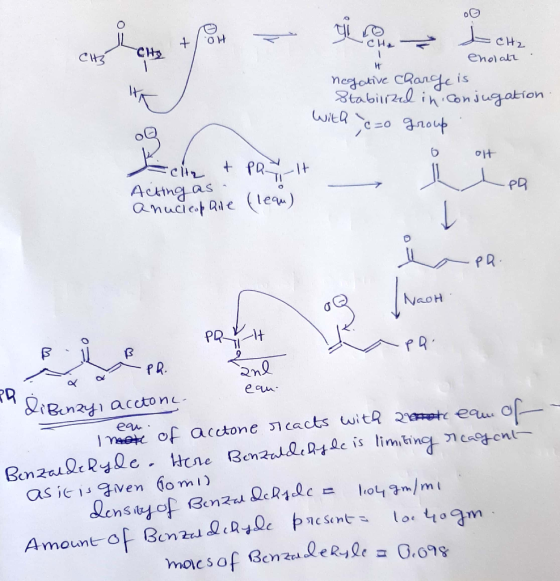 CH3 CH2 H + ⊖OH ⇌ CH2 H ⇌ O⊖ CH2
enolate
negative charge is
Stabilized in conjugation
with >C=O group
O⊖ CH2 + Ph H O → O OH Ph
Acting as
a nucleophile (1equ)
O Ph
NaOH
Ph H O O⊖ Ph
2nd
equ.
β O β
Ph α α Ph
diBenzyl acetone.
equ.
1 mole of acetone reacts with 2 mole equ of
Benzaldehyde. Here Benzaldehyde is limiting reagent
as it is given (10 ml)
density of Benzaldehyde = 1.04 gm/ml
Amount of Benzaldehyde present = 10.40 gm.
moles of Benzaldehyde = 0.098